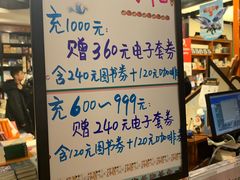 充1000元：
赠360元电子套券
含240元图书券+120元咖啡券
充600～999元：
赠240元电子套券
含120元图书券+120元咖啡券